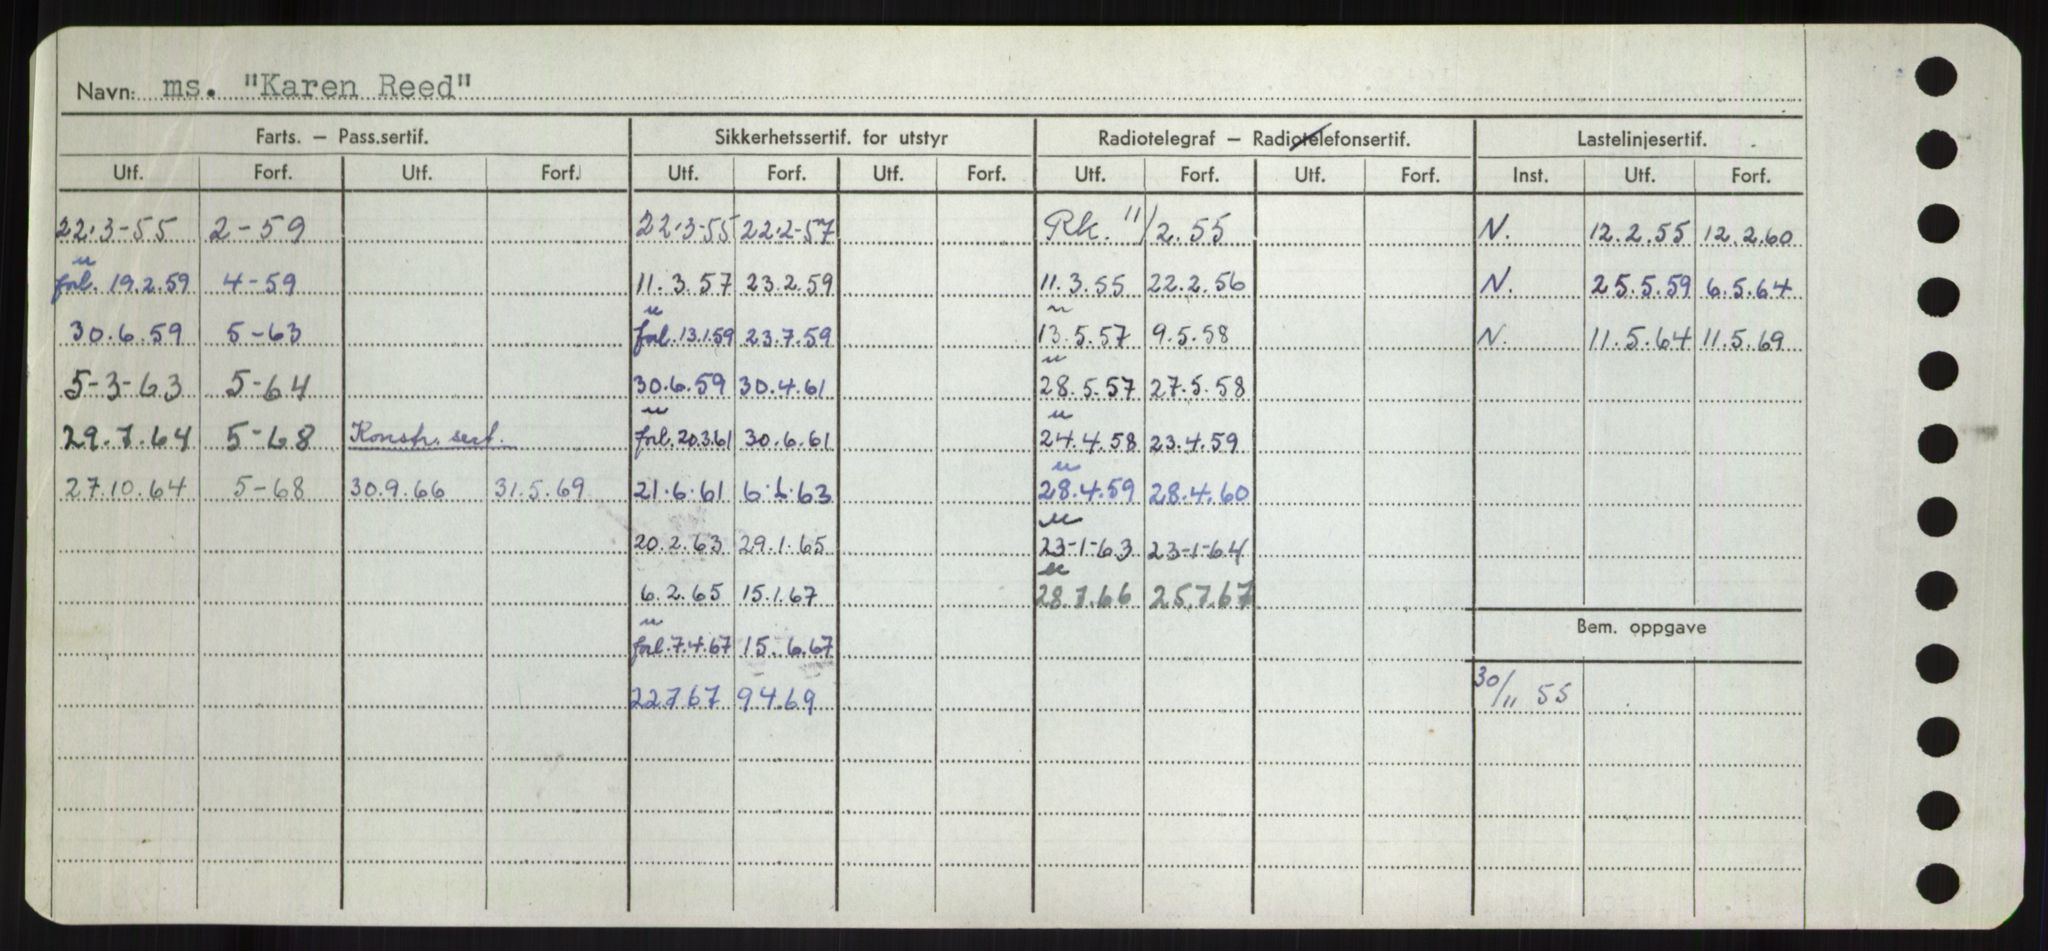 Navn: ms. "Karen Reed"
Farts. – Pass.sertif. Sikkerhetssertif. for utstyr Radiotelegraf – Radiotelefonsertif. Lastelinjesertif.
Utf. Forf. Utf. Forf. Utf. Forf. Utf. Forf. Utf. Forf. Utf. Forf. Inst. Utf. Forf.
22.3-55 2-59 22.3-55 22.2-57 Rk. 11/2.55 N. 12.2.55 12.2.60
forl. 19.2.59 4-59 11.3.57 23.2.59 11.3.55 22.2.56 N. 25.5.59 6.5.64
30.6.59 5-63 forl. 13.1.59 23.7.59 13.5.57 9.5.58 N. 11.5.64 11.5.69
5-3-63 5-64 30.6.59 30.4.61 28.5.57 27.5.58
29.7.64 5-68 Konstr. sert. forl. 20.3.61 30.6.61 24.4.58 23.4.59
27.10.64 5-68 30.9.66 31.5.69 21.6.61 28.4.59 28.4.60
20.2.63 29.1.65 23-1-63 23-1-64
6.2.65 15.1.67 28.7.66 25.7.67
Bem. oppgave
forl. 7.4.67 15.6.67
22.7.67 9.4.69 30/11 55